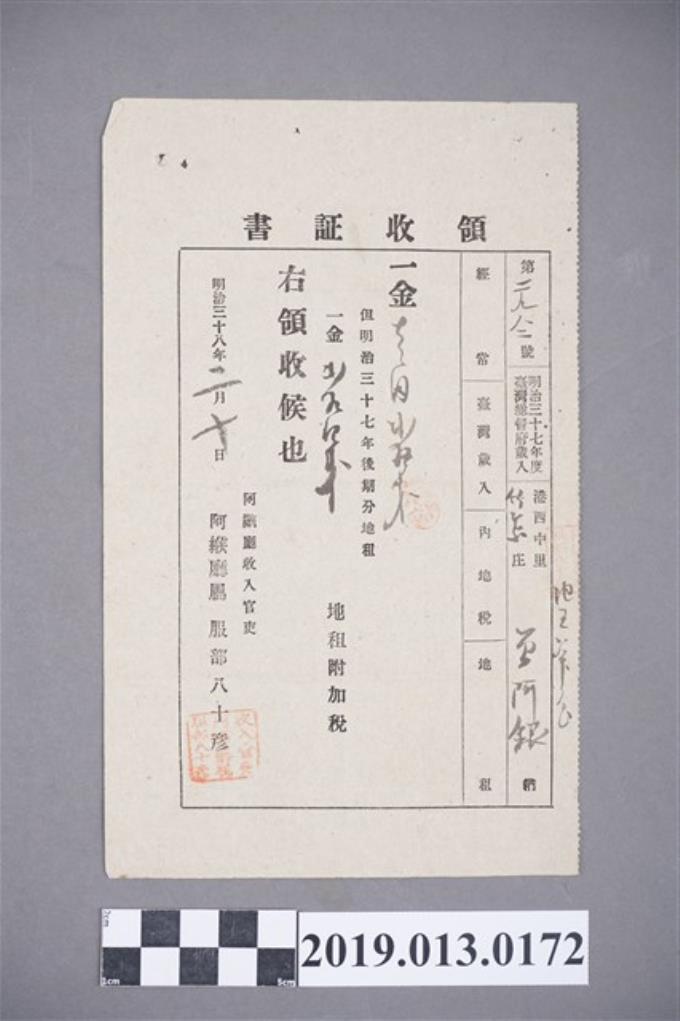 領收証書
第二九八二號
明治三十七年度
臺灣總督府歲入
港西中里
庄
阿銀
納
經常
臺灣歲入
內地稅
地租
一金
但明治三十七年後期分地租
一金
地租附加稅
右領收候也
明治三十八年二月十日
阿緱廳收入官吏
阿緱廳屬 服部八十彥
2019.013.0172
1cm
5cm